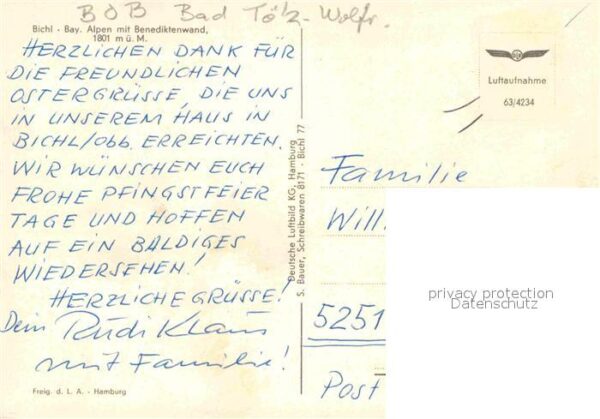 BOB Bad Tölz-Wolfr.
Bichl - Bay. Alpen mit Benediktenwand,
1801 m ü. M.
HERZLICHEN DANK FÜR
DIE FREUNDLICHEN
OSTERGRÜSSE, DIE UNS
IN UNSEREM HAUS IN
BICHL/Obb. ERREICHTEN.
WIR WÜNSCHEN EUCH
FROHE PFINGSTFEIER
TAGE UND HOFFEN
AUF EIN BALDIGES
WIEDERSEHEN!
HERZLICHE GRÜSSE!
Dein Rudi Klaus
mit Familie!
Freig. d. L. A. - Hamburg
Deutsche Luftbild KG, Hamburg
S. Bauer, Schreibwaren 8171 - Bichl 77
Luftaufnahme
63/4234
Familie
Will
5251
Post
privacy protection
Datenschutz